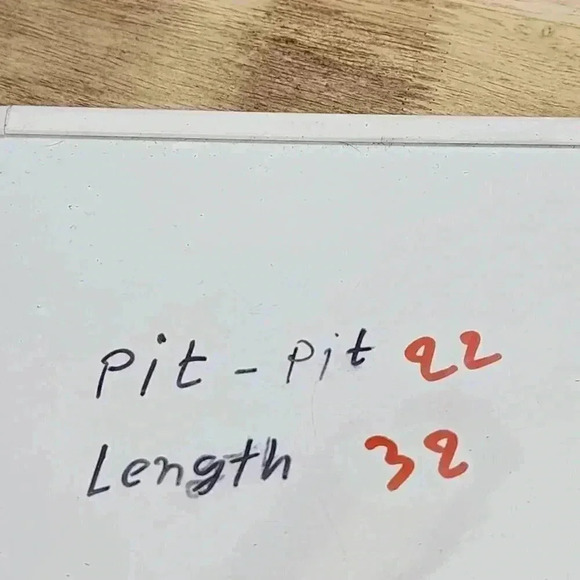 Pit - Pit 22
Length 32